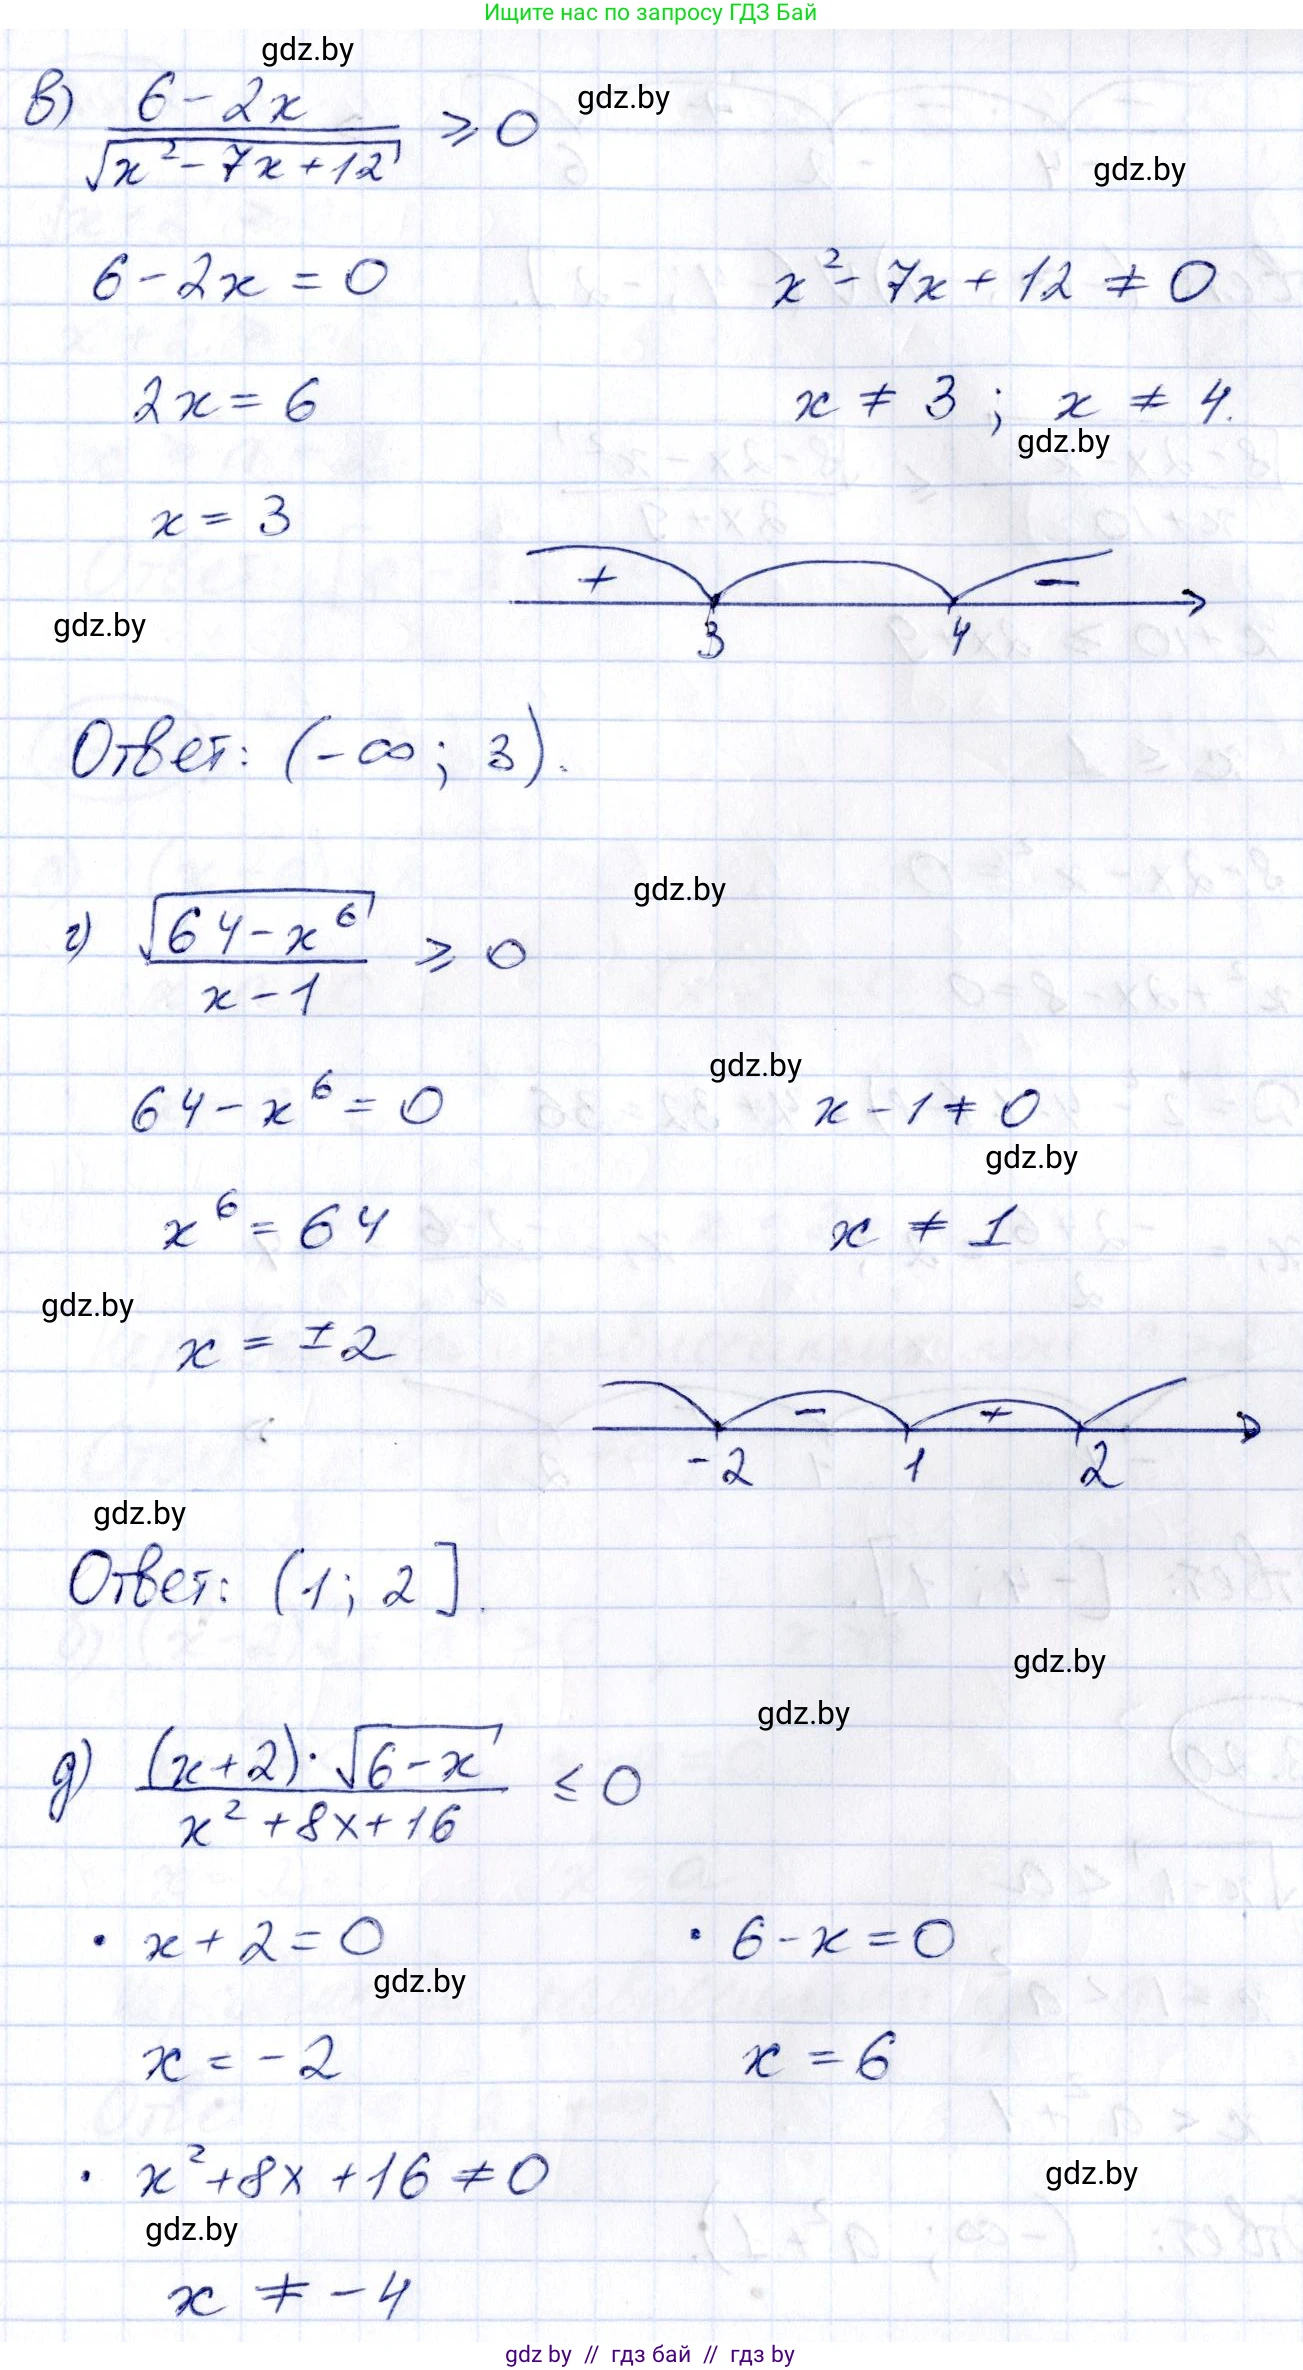 Ищите нас по запросу ГДЗ Бай
gdz.by
в) (6 - 2x) / √(x² - 7x + 12) ≥ 0
gdz.by
gdz.by
6 - 2x = 0
x² - 7x + 12 ≠ 0
2x = 6
x ≠ 3 ; x ≠ 4.
gdz.by
x = 3
+ −
3 4
gdz.by
Ответ: (-∞; 3).
gdz.by
г) √(64 - x⁶) / (x - 1) ≥ 0
gdz.by
64 - x⁶ = 0
x - 1 ≠ 0
gdz.by
x⁶ = 64
x ≠ 1
gdz.by
x = ±2
− +
-2 1 2
gdz.by
Ответ: (1; 2].
gdz.by
gdz.by
д) ((x+2)·√(6 - x)) / (x² + 8x + 16) ≤ 0
• x + 2 = 0
• 6 - x = 0
gdz.by
x = -2
x = 6
• x² + 8x + 16 ≠ 0
gdz.by
gdz.by
x ≠ -4
gdz by // гдз бай // гдз by